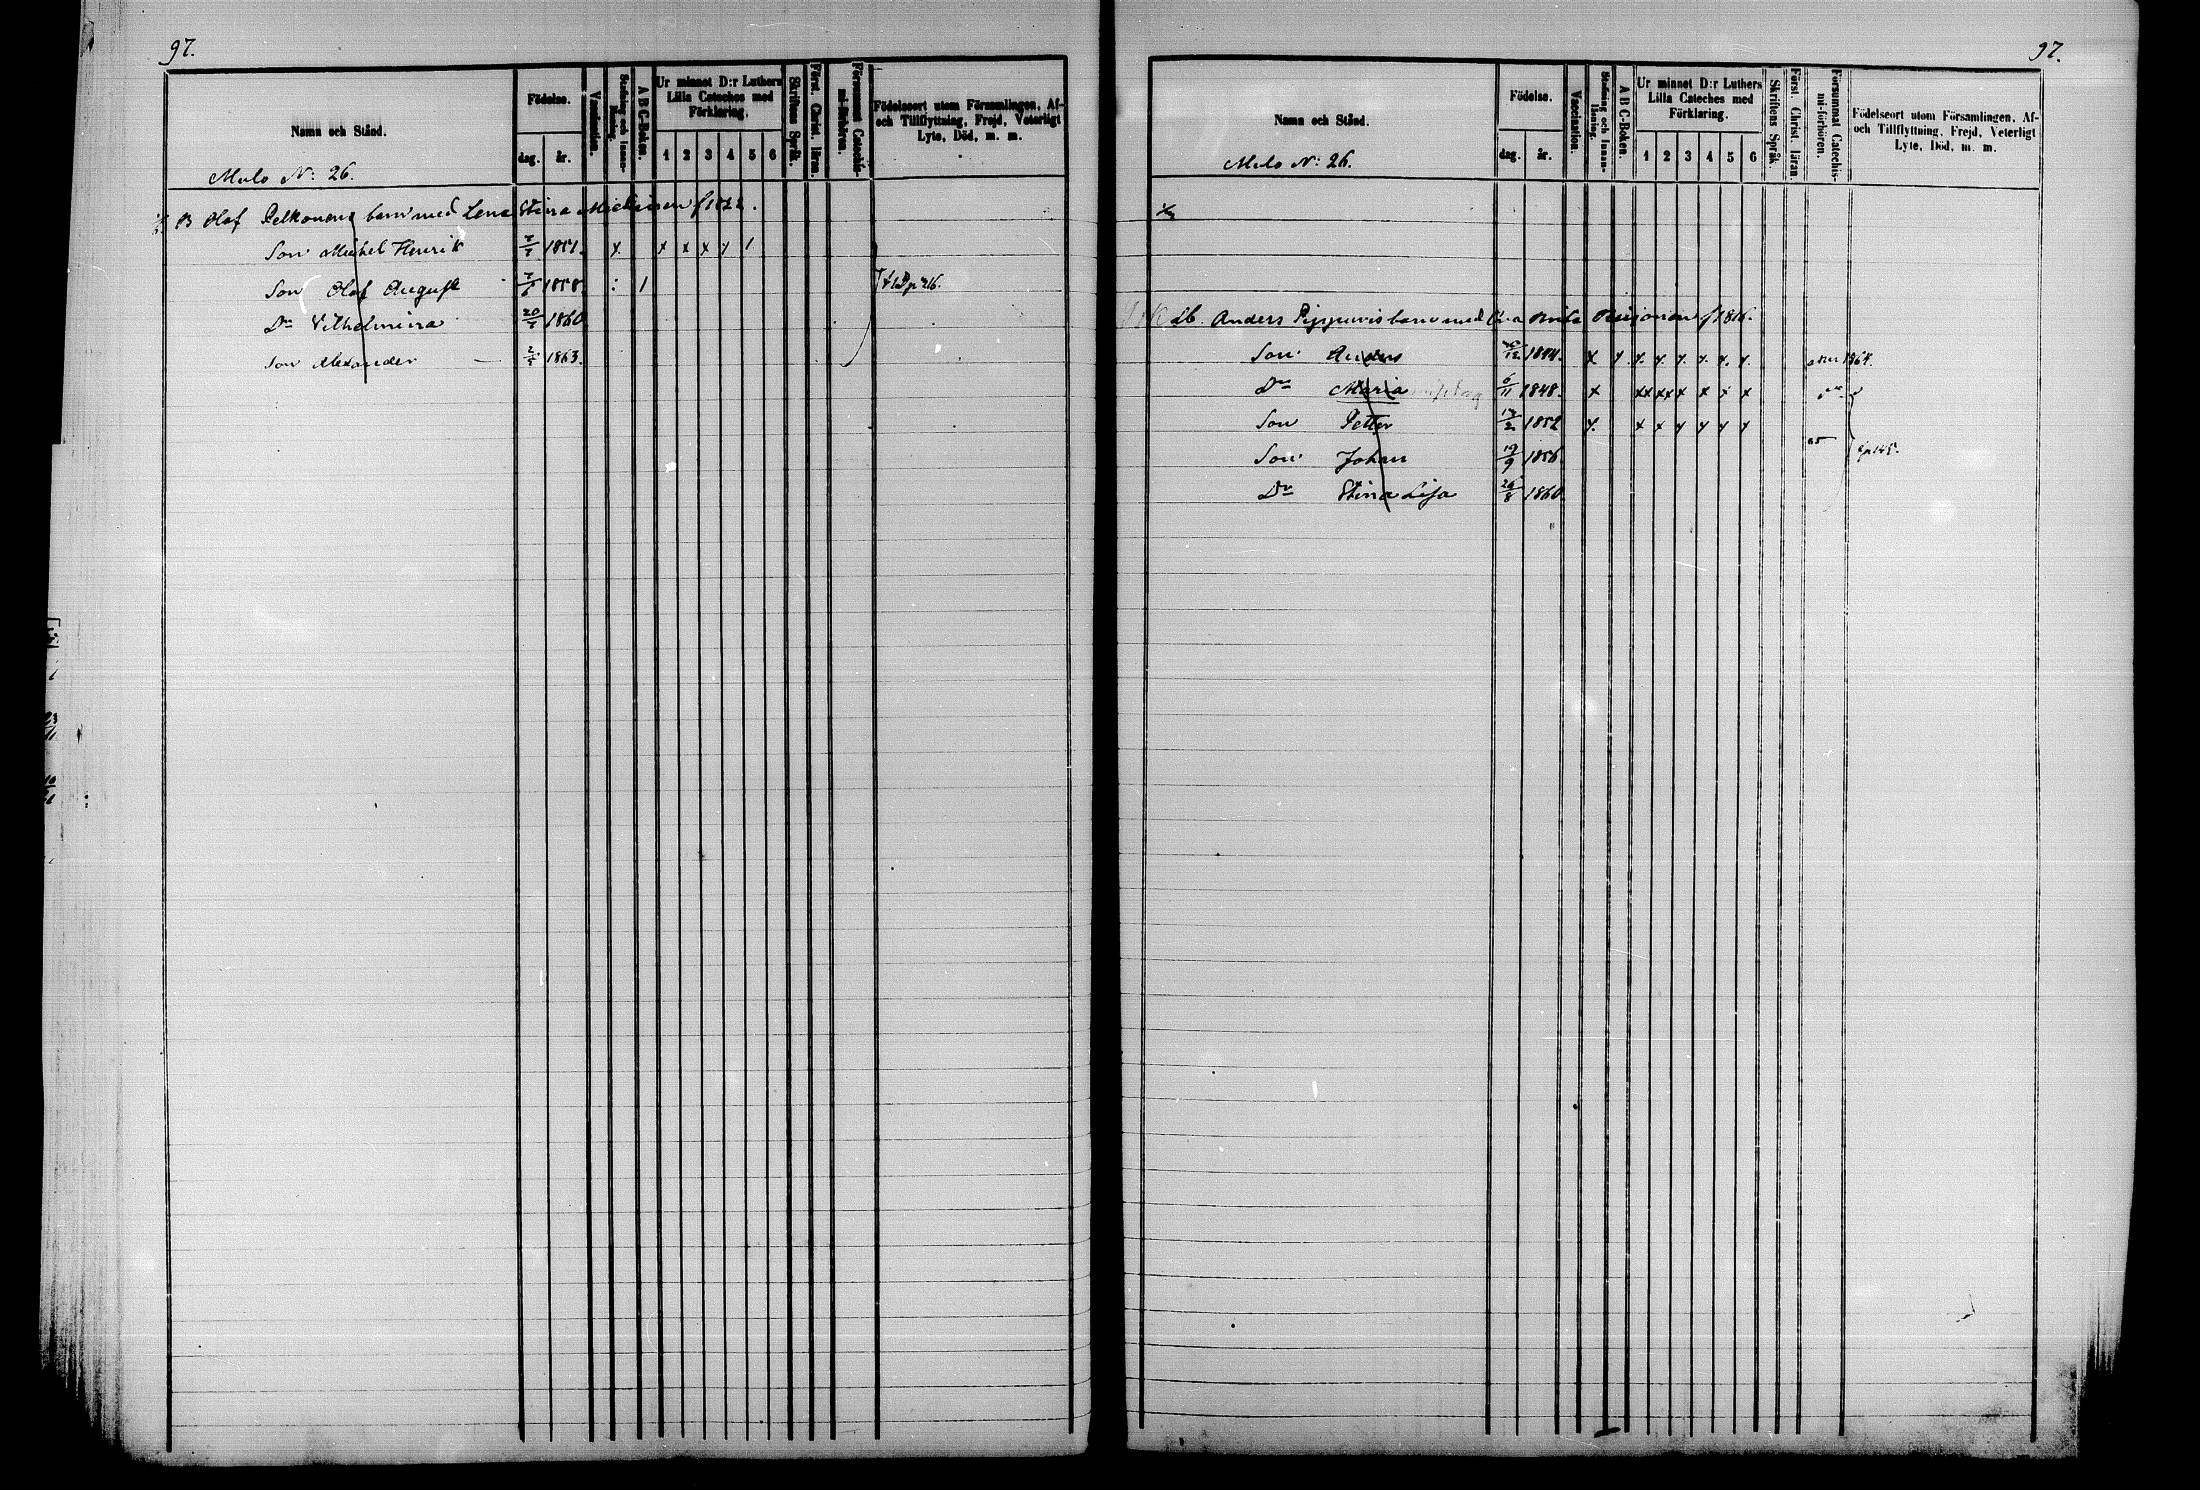 97.
Namn och Stånd.
Födelse.
dag. år.
Vaccination.
Stafning och Innanläsning.
A B C-Boken.
Ur minnet D:r Luthers Lilla Cateches med Förklaring.
1 2 3 4 5 6
Skriftens Språk.
Först. Christ. läran.
Försummat Catechismi-förhören.
Födelseort utom Församlingen, Af- och Tillflyttning, Frejd, Veterligt Lyte, Död, m. m.
Melo N: 26.
B Olof Pelkonens barn med Lena Stina f 1822.
Son Michel Henrik 1851. x x x x y 1
Son Olof August 1858. : 1
Dr Vilhelmina 20 1860
Son Alexander 1863.
97.
Namn och Stånd.
Födelse.
dag. år.
Vaccination.
Stafning och Innanläsning.
A B C-Boken.
Ur minnet D:r Luthers Lilla Cateches med Förklaring.
1 2 3 4 5 6
Skriftens Språk.
Först. Christ. läran.
Försummat Catechismi-förhören.
Födelseort utom Församlingen, Af- och Tillflyttning, Frejd, Veterligt Lyte, Död, m. m.
Melo N: 26.
Lb. Anders barn med f 1816.
Son Anders 1844. x y y. y. y. y. y. y. 1864.
Dr Maria 6/11 1848. x xx xx x x x x
Son Petter 1852 y. x x y y y y
Son Johan 19/9 1856 p 145.
Dr Stina Lisa 1860